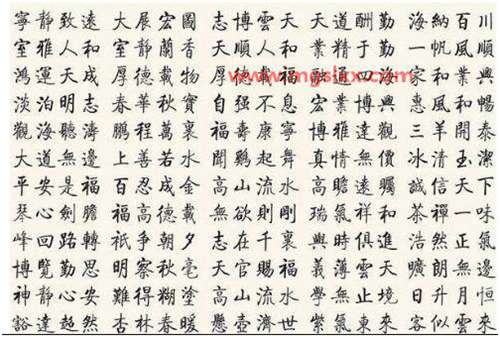 寧靜致遠 大展宏圖 志博雲天 天道酬勤 海納百川
室雅人和 室靜蘭香 順人和 業精于勤 一帆風順
鴻運天成 厚德載物 厚德載福 四海 家和業興
淡泊明志 春華秋實 自强不息 宏業博興 惠風和暢
觀海聽濤 鵬程萬裏 福壽康寧 博雅達觀 三羊開泰
大道無邊 上善若水 聞鷄起舞 真情無價 冰清玉潔
平安是福 百忍成金 高山流水 高瞻遠矚 誠信天下
琴心劍膽 福高德載 無欲則剛 瑞氣祥和 茶禪一味
峰回路轉 祇争朝夕 志在千裏 與時俱進 浩然正氣
博覽勤思 明察秋毫 天官賜福 義薄雲天 曠無邊
神靜心安 難得糊塗 高山流水 學無止境 日升月恒
豁達超然 杏林春暖 懸壺濟世 紫氣東來 客似雲來